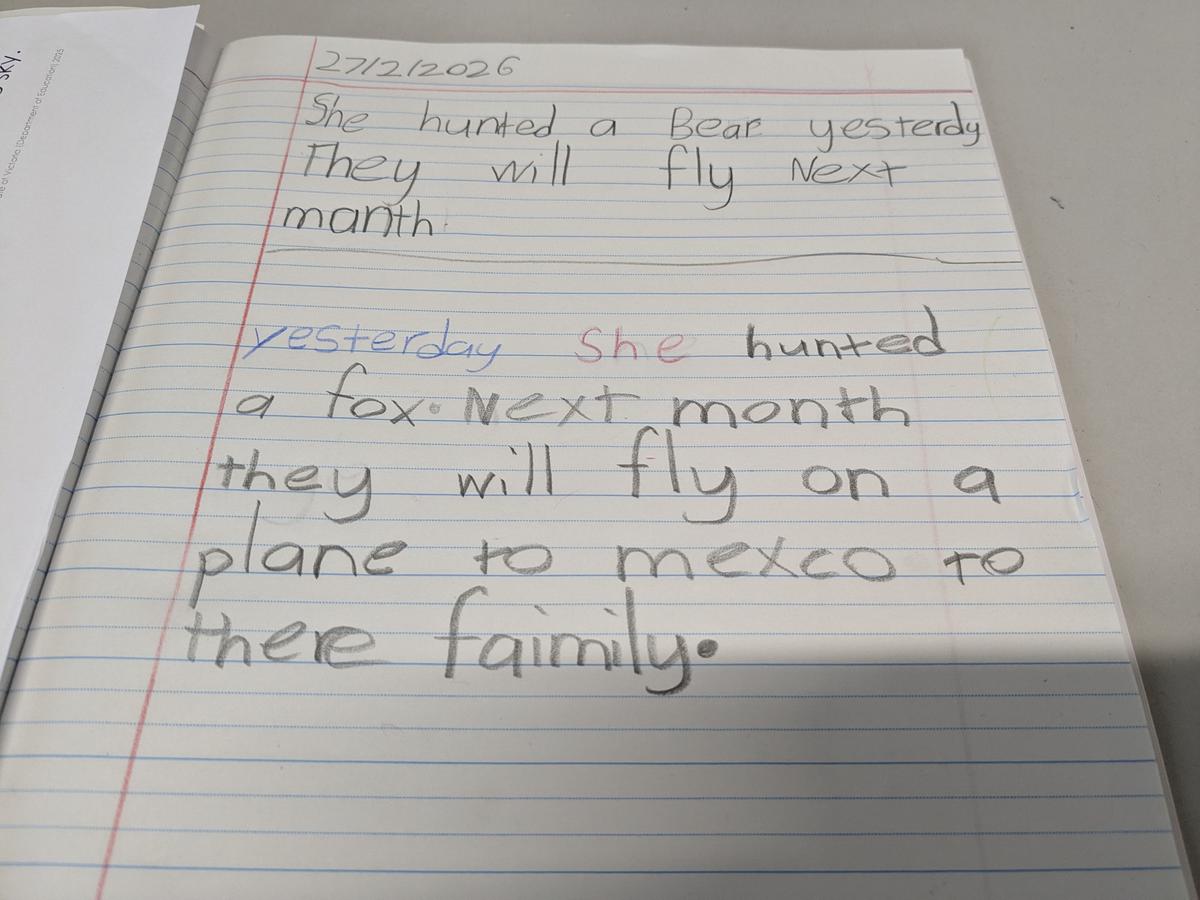 sky.
27/2/2026
She hunted a Bear yesterdy
They will fly Next
manth.
yesterday She hunted
a fox. Next month
they will fly on a
plane to mexco to
there faimily.